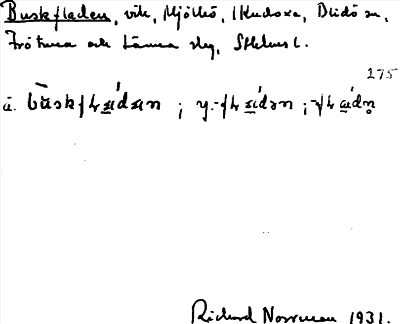 Buskfladen, vik, Mjölkö, i Kudoxa, Blidö sn,
Frötuna och Länna skg, Sthlms l.
275
ä. bùskfɫa̲dan ; y. -fɫa̲dən ; -fɫa̲dn̥
Richard Norrman 1931.